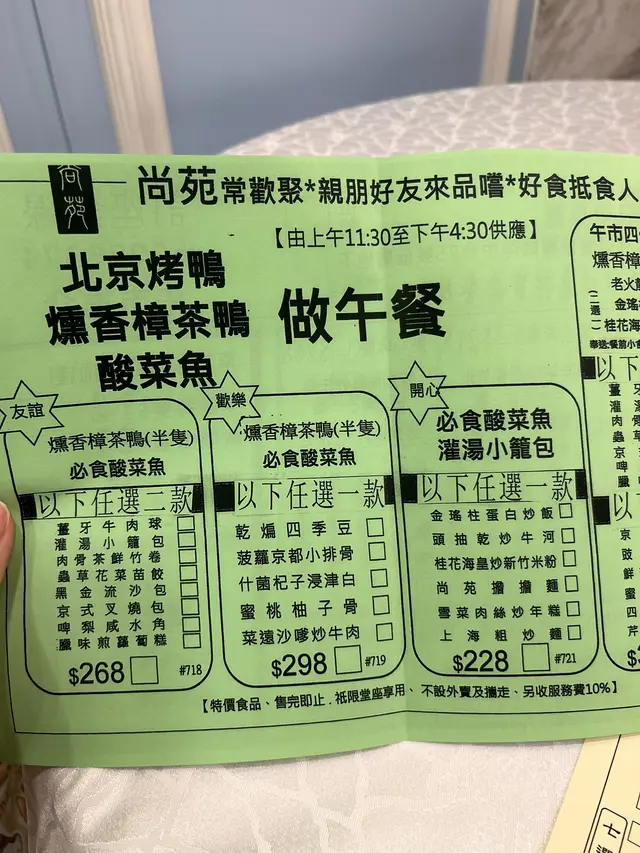 尚苑
尚苑常歡聚*親朋好友來品嚐*好食抵食人
【由上午11:30至下午4:30供應】
北京烤鴨
燻香樟茶鴨
酸菜魚
做午餐
友誼
燻香樟茶鴨(半隻)
必食酸菜魚
以下任選二款
薑牙牛肉球
灌湯小籠包
肉骨茶鮮竹卷
蟲草花菜苗餃
黑金流沙包
京式叉燒包
啤梨咸水角
臘味煎蘿蔔糕
$268 #718
歡樂
燻香樟茶鴨(半隻)
必食酸菜魚
以下任選一款
乾煸四季豆
菠蘿京都小排骨
什菌杞子浸津白
蜜桃柚子骨
菜遠沙嗲炒牛肉
$298 #719
開心
必食酸菜魚
灌湯小籠包
以下任選一款
金瑤柱蛋白炒飯
頭抽乾炒牛河
桂花海皇炒新竹米粉
尚苑擔擔麵
雪菜肉絲炒年糕
上海粗炒麵
$228 #721
午市四
燻香樟
老火
(二選一)
金瑤
桂花海
奉送:餐前小食
以下
薑牙
灌
肉骨
蟲草
京
啤
臘
以下
京
豉
鮮
蜜
四
芹
【特價食品、售完即止．祇限堂座享用、不設外賣及攜走、另收服務費10%】
七